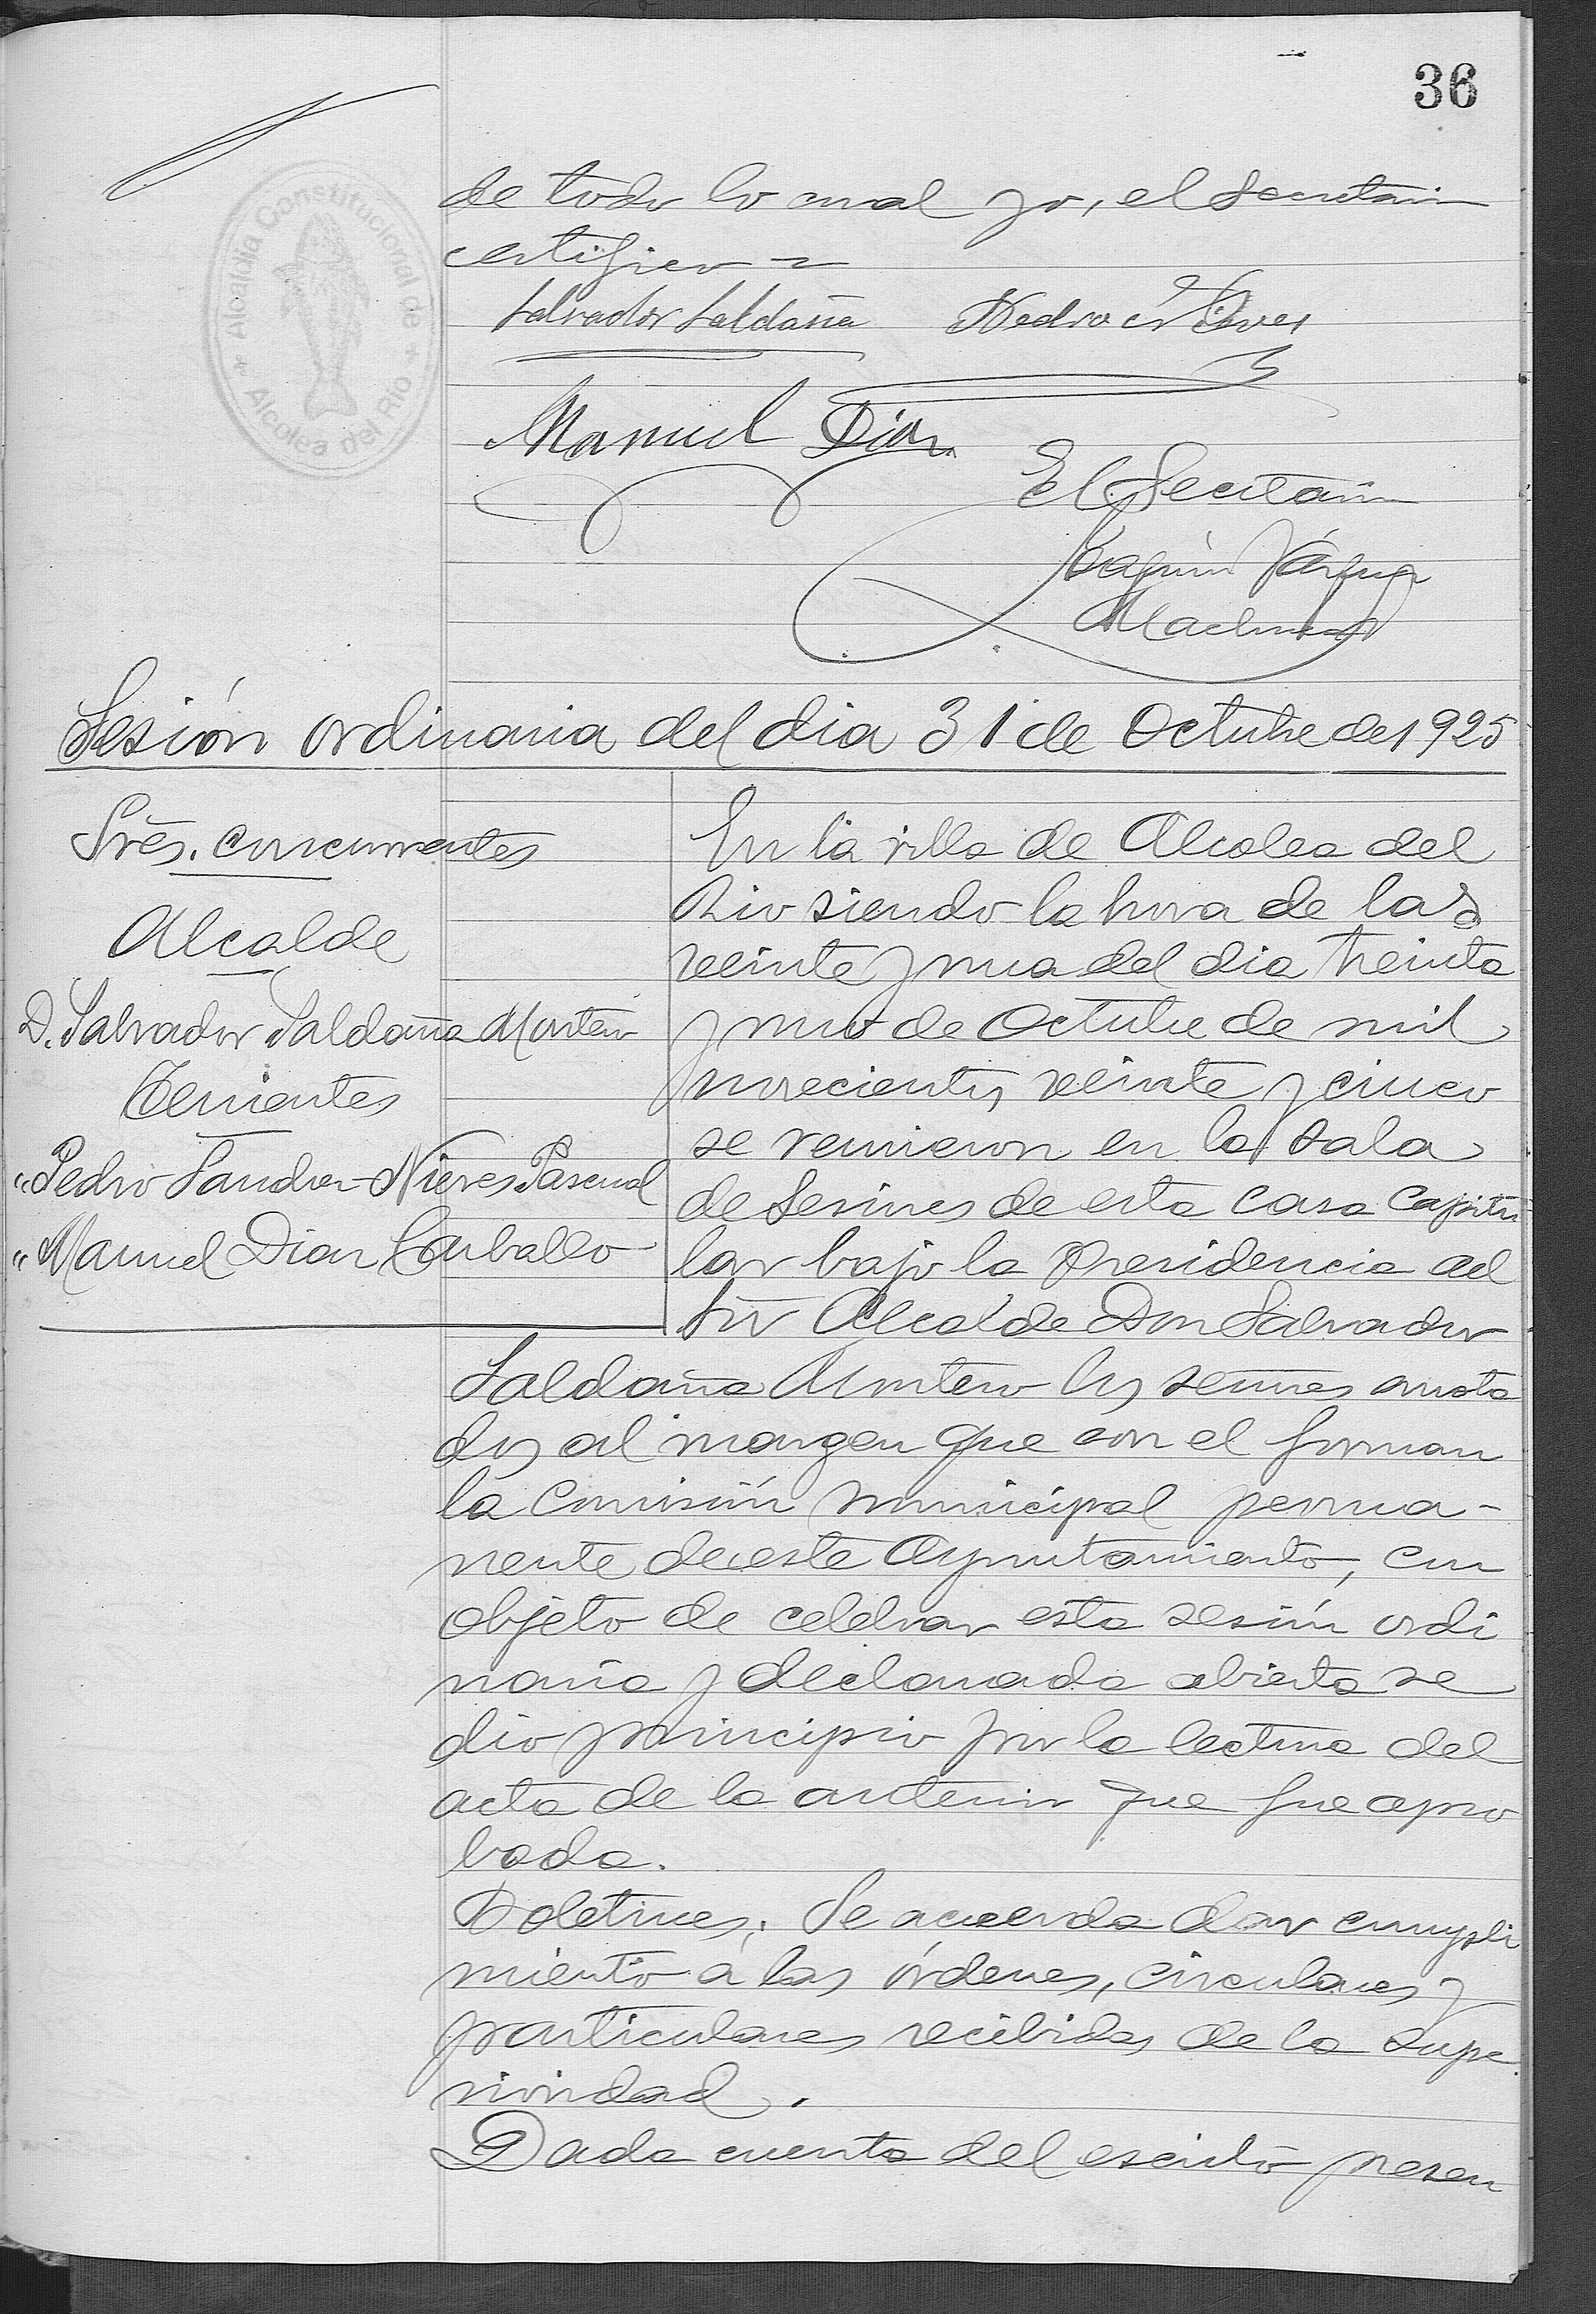 36
de todo lo cual yo, el Secretario
certifico =
Salvador Saldaña Pedro S Nieves
Manuel Díaz
El Secretario
Joaquín
Alcaldia Constitucional de
Alcolea del Rio
Sesión ordinaria del dia 31 de Octubre de 1925
Sres. concurrentes
Alcalde
D. Salvador Saldaña Montero
Tenientes
" Pedro Sanchez-Nieves Pascual
" Manuel Diaz Carballo
En la villa de Alcolea del
Rio siendo la hora de las
veinte y una del dia treinta
y uno de Octubre de mil
novecientos veinte y cinco
se reunieron en la sala
de Sesiones de esta Casa Capitu
lar bajo la Presidencia del
Sr Alcalde Don Salvador
Saldaña Montero los señores anota
dos al margen que con el forman
la Comisión municipal perma-
nente de este Ayuntamiento, con
objeto de celebrar esta sesión ordi
naria y declarada abierta se
dio principio por la lectura del
acta de la anterior que fue apro
bada.
Boletines. Se acuerda dar cumpli
miento á las órdenes, circulares y
particulares recibidas de la supe
rioridad.
Dada cuenta del escrito presen